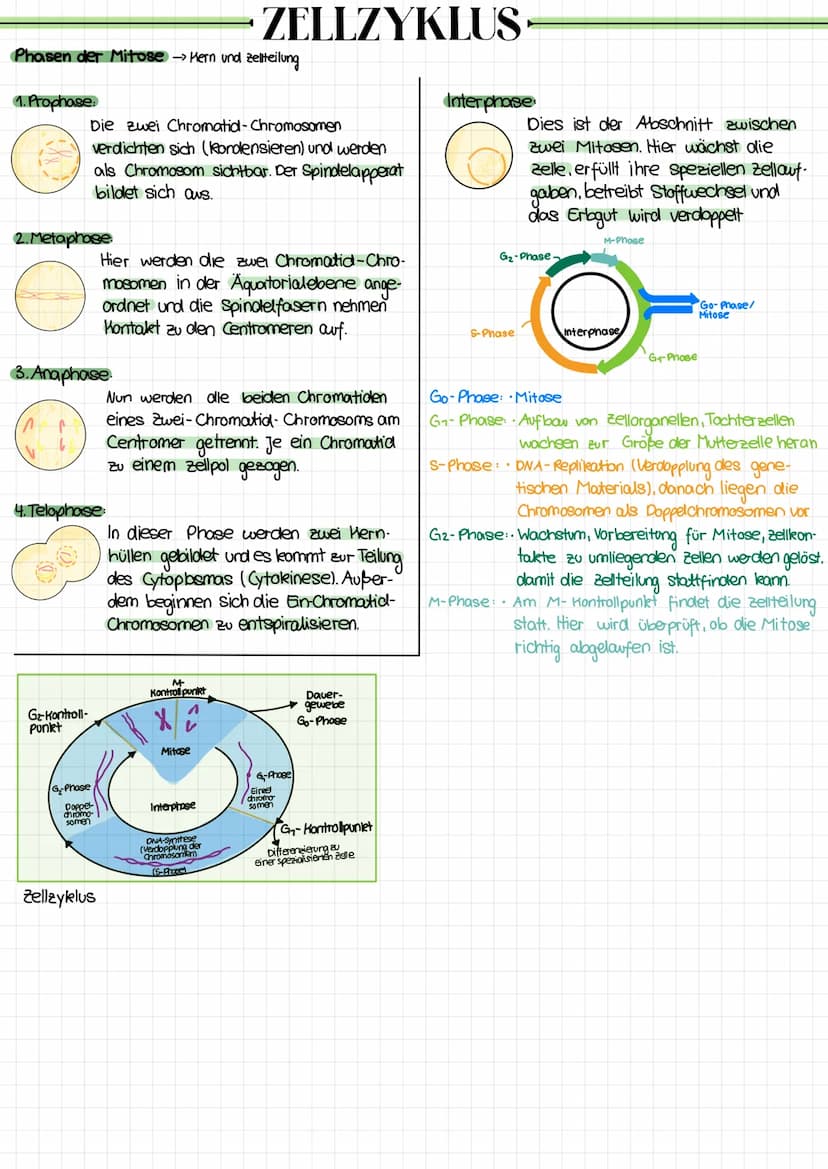 ZELLZYKLUS
Phasen der Mitose → Kern und zellteilung
1. Prophase:
Die zwei Chromatid-Chromosomen
verdichten sich (kondensieren) und werden
als Chromosom sichtbar. Der Spindelapperat
bildet sich aus.
2. Metaphase:
Hier werden die zwei Chromatid-Chro-
mosomen in der Äquatorialebene ange-
ordnet und die Spindelfasern nehmen
Kontakt zu den Centromeren auf.
3. Anaphase:
Nun werden die beiden Chromatiden
eines Zwei-Chromatid-Chromosoms am
Centromer getrennt. Je ein Chromatid
zu einem zellpol gezogen.
4. Telophase:
In dieser Phase werden zwei Kern-
hüllen gebildet und es kommt zur Teilung
des Cytoplasmas (Cytokinese). Außer-
dem beginnen sich die Ein-Chromatid-
Chromosomen zu entspiralisieren.
Interphase:
Dies ist der Abschnitt zwischen
zwei Mitosen. Hier wächst die
zelle, erfüllt ihre speziellen zellauf-
gaben, betreibt Stoffwechsel und
das Erbgut wird verdoppelt
M-Phase
G2-Phase
G0-Phase/
Mitose
S-Phase
Interphase
G1-Phase
G0-Phase: · Mitose
G1-Phase: · Aufbau von zellorganellen, Tochterzellen
wachsen zur Größe der Mutterzelle heran
S-Phase: · DNA-Replikation (Verdopplung des gene-
tischen Materials), danach liegen die
Chromosomen als Doppelchromosomen vor
G2-Phase: · Wachstum, Vorbereitung für Mitose, zellkon-
takte zu umliegenden zellen werden gelöst,
damit die zellteilung stattfinden kann.
M-Phase: · Am M-Kontrollpunkt findet die zellteilung
statt. Hier wird überprüft, ob die Mitose
richtig abgelaufen ist.
M-
Kontrollpunkt
Dauer-
gewebe
G0-Phase
G2-Kontroll-
punkt
Mitose
G2-Phase
Doppel-
chromo-
somen
G1-Phase
Einzel
chromo-
somen
Interphase
G1-Kontrollpunkt
DNA-Synthese
(Verdopplung der
Chromosomen)
(S-Phase)
Differenzierung zu
einer spezialisierten zelle
Zellzyklus